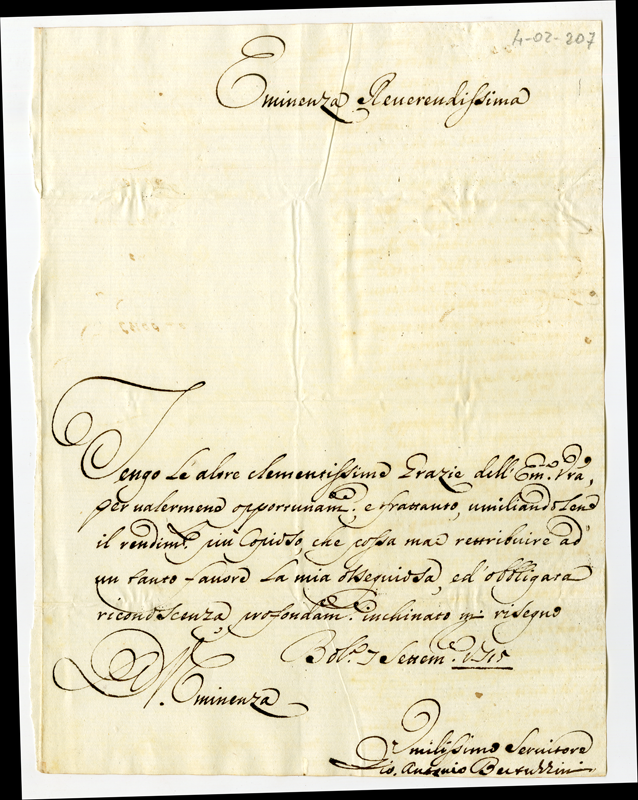 4-02-207
Eminenza Reuerendissima
Tengo le alore clementissime Grazie dell' Em.ª Vrã,
per ualermene opportunam.te e frattanto, umiliandolene
il rendim.to più Copioso, che possa mai rettribuire ad
un tanto fauore la mia ossequiosa, ed' obbligata
riconoscenza, profondam.te inchinato mi risegno
D. V. Eminenza
Bol.ª 7 Settem.e 1715
Vmilissimo Seruitore
Gio. Antonio